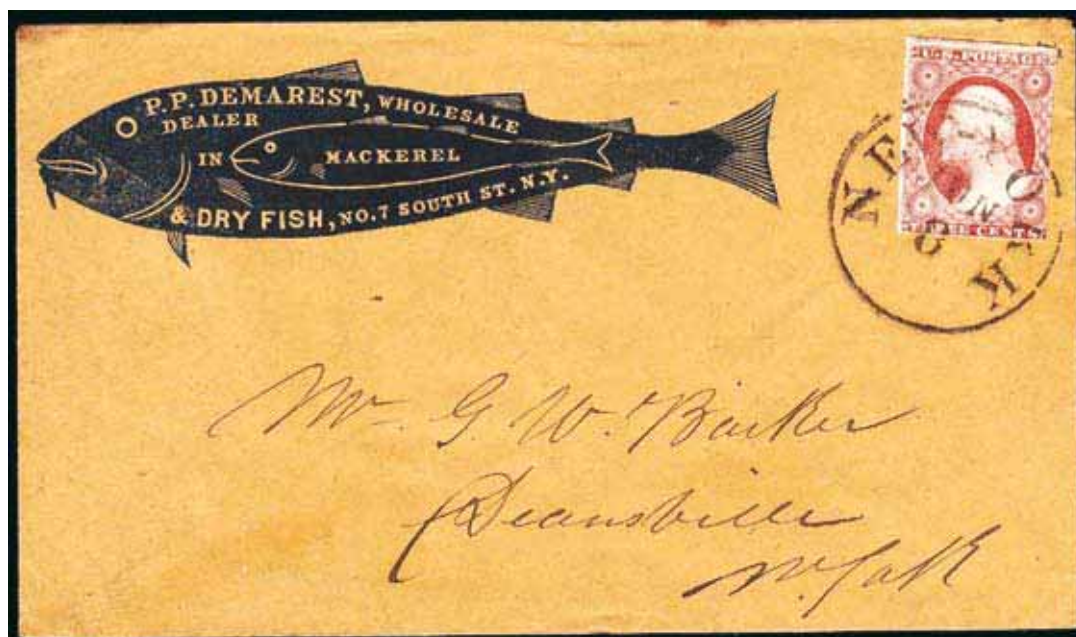 P.P. DEMAREST, WHOLESALE
DEALER
IN MACKEREL
& DRY FISH, NO. 7 SOUTH ST. N.Y.
U.S. POSTAGE
THREE CENTS
NEW YORK
Mr. G. W. Barker
Deansville
N. York